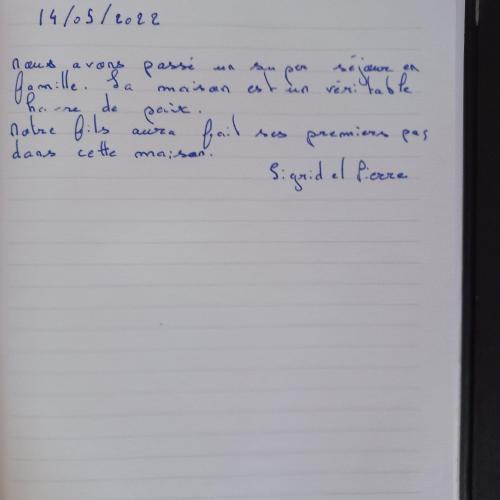 14/05/2022
nous avons passé un super séjour en
famille. La maison est un véritable
havre de paix.
Notre fils aura fait ses premiers pas
dans cette maison.
Sigrid et Pierre